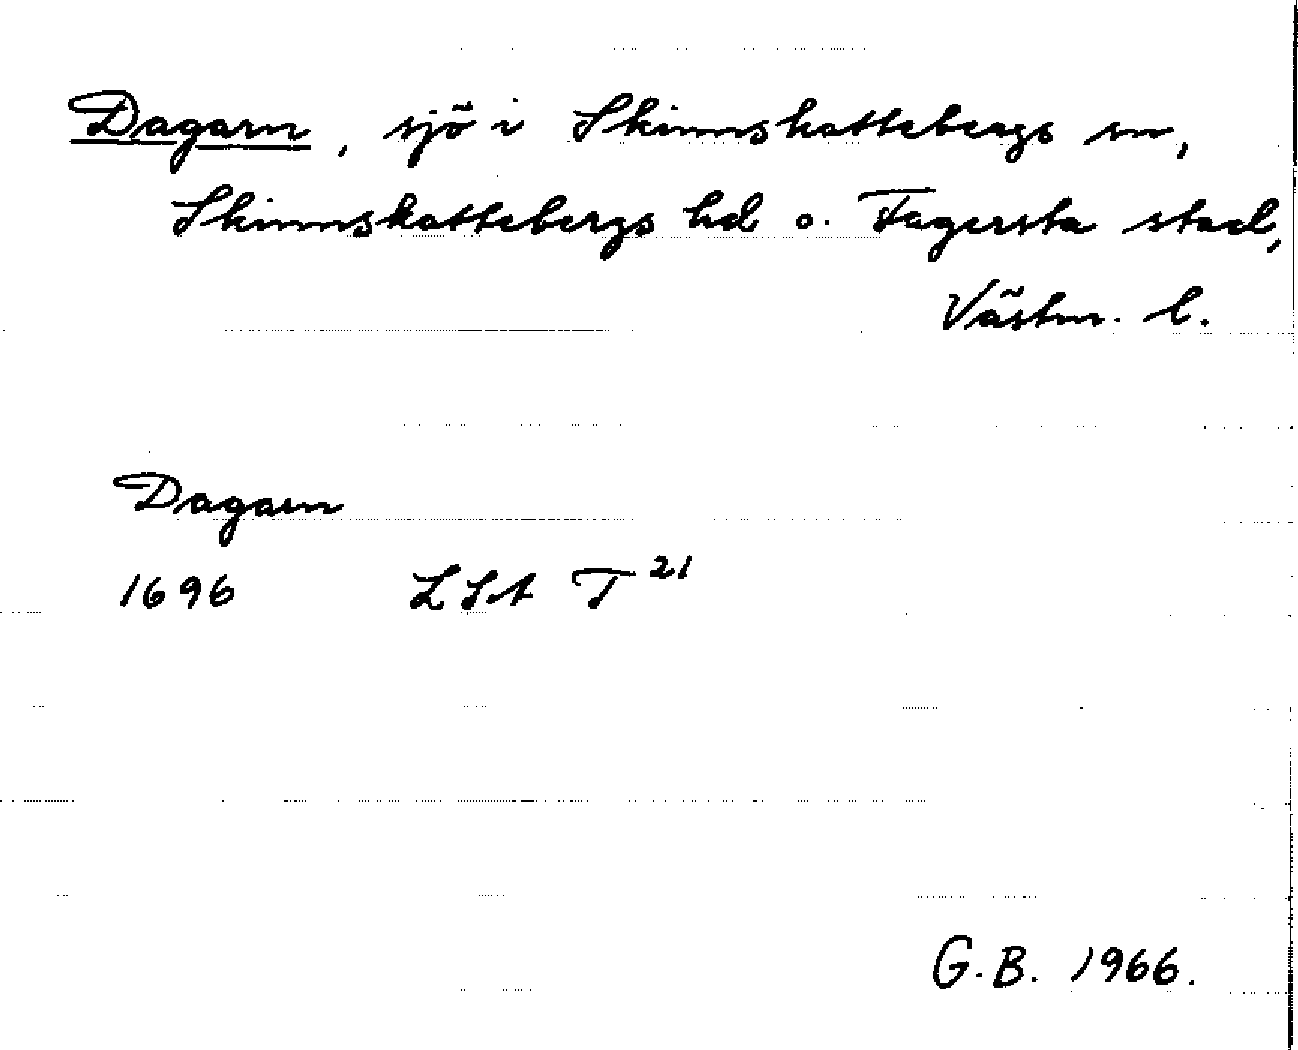 Dagarn, sjö i Skinnskattebergs sn,
Skinnskattebergs hd o. Fagersta stad,
Västm. l.
Dagarn
1696 LSA T 21
G.B. 1966.